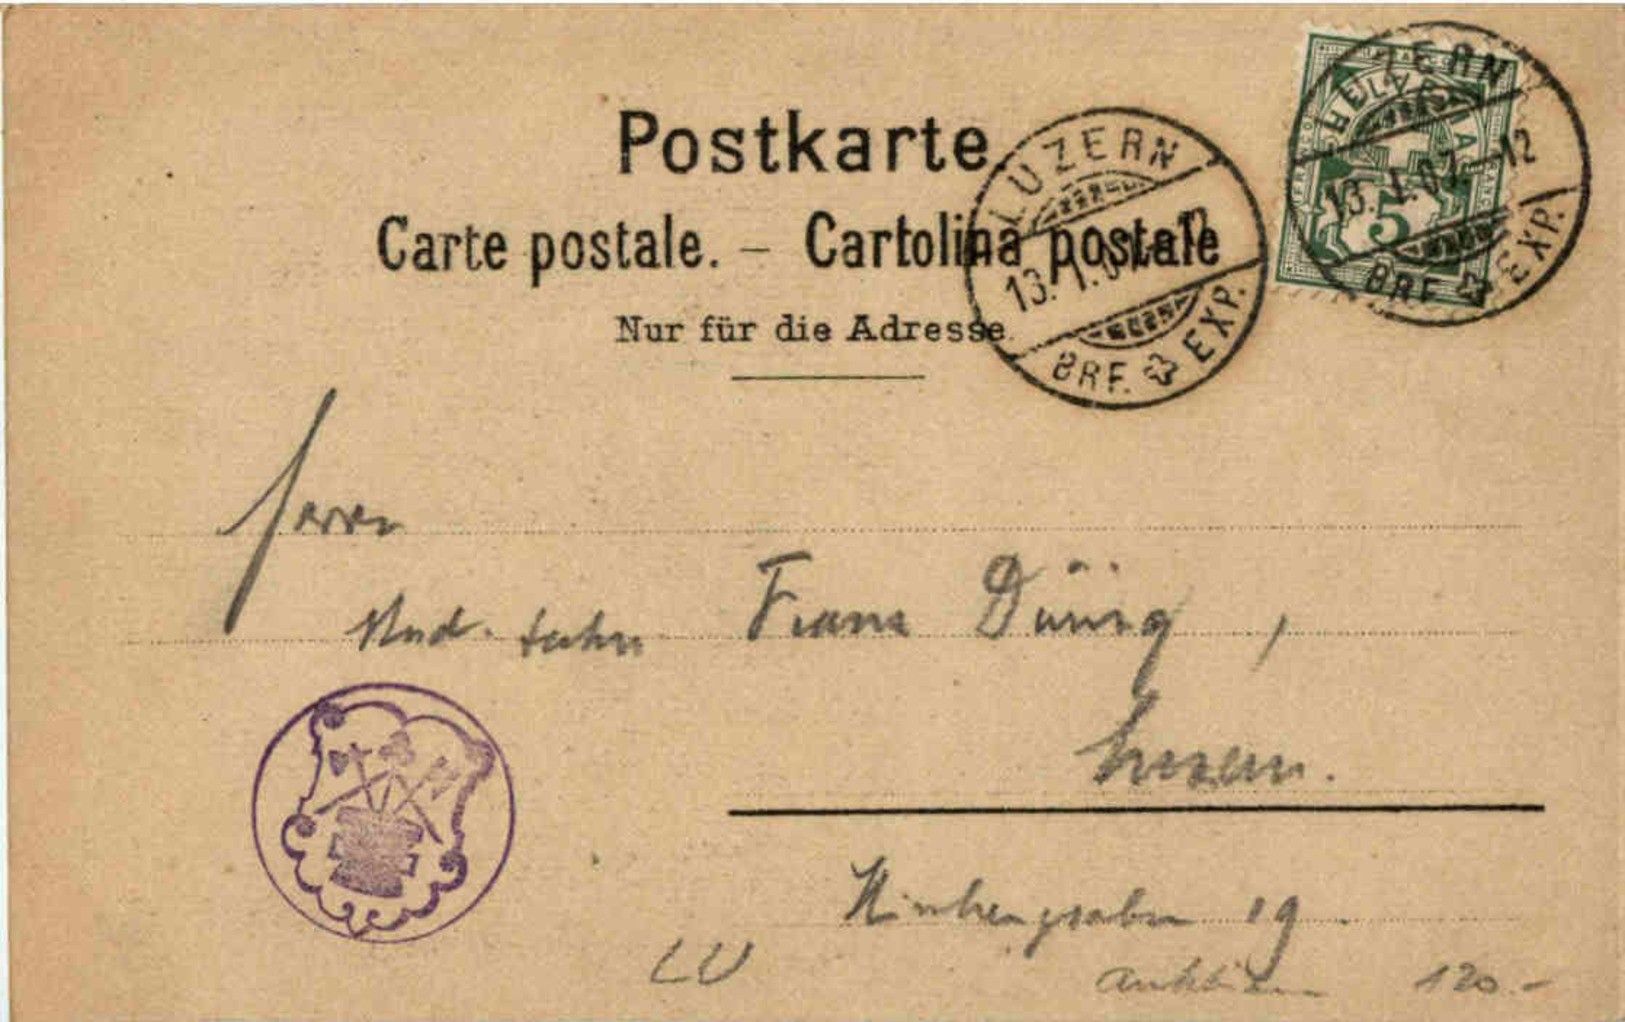 Postkarte
Carte postale. – Cartolina postale
Nur für die Adresse.
LUZERN
13. I. 07.–12
BRF. EXP.
HELVETIA
5
LUZERN
13. I. 07.–12
BRF. EXP.
Herrn
stud. Franz Düring,
Luzern.
19
LU
120.-